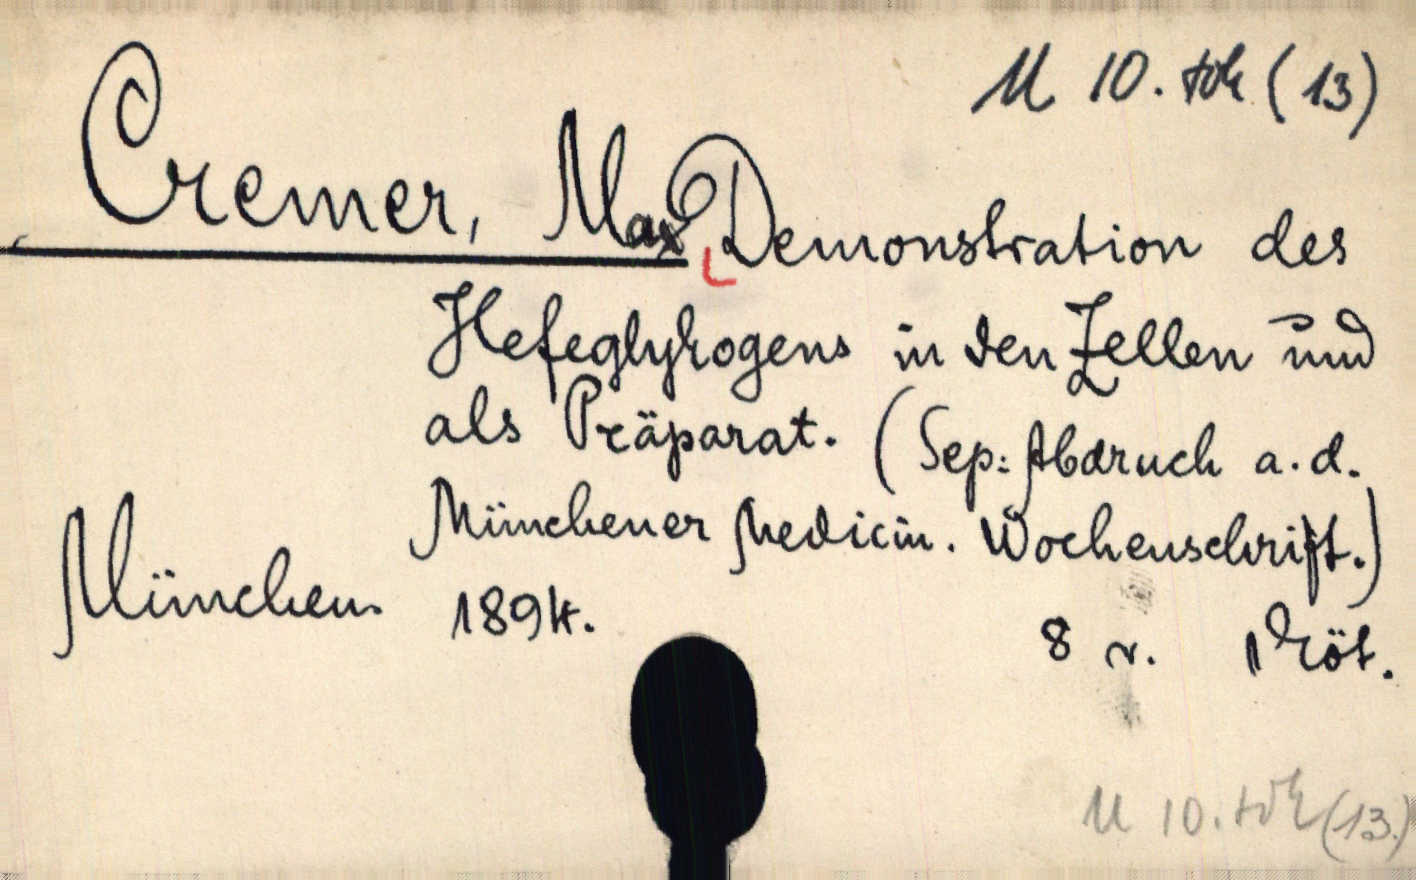 M 10. tök (13)
Cremer, Max Demonstration des
Hefeglykogens in den Zellen und
als Präparat. (Sep: Abdruck a. d.
Münchener Medicin. Wochenschrift.)
München 1894.
8 r. 1 köt.
M 10. tök (13.)